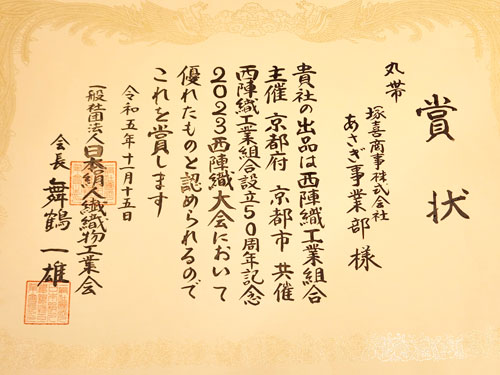 賞状
丸帯
塚喜商事株式会社
あさぎ事業部 様
貴社の出品は西陣織工業組合
主催 京都府 京都市 共催
西陣織工業組合設立50周年記念
2023西陣織大会において
優れたものと認められるので
これを賞します
令和五年十一月十五日
一般社団法人日本絹人繊織物工業会
会長 舞鶴一雄